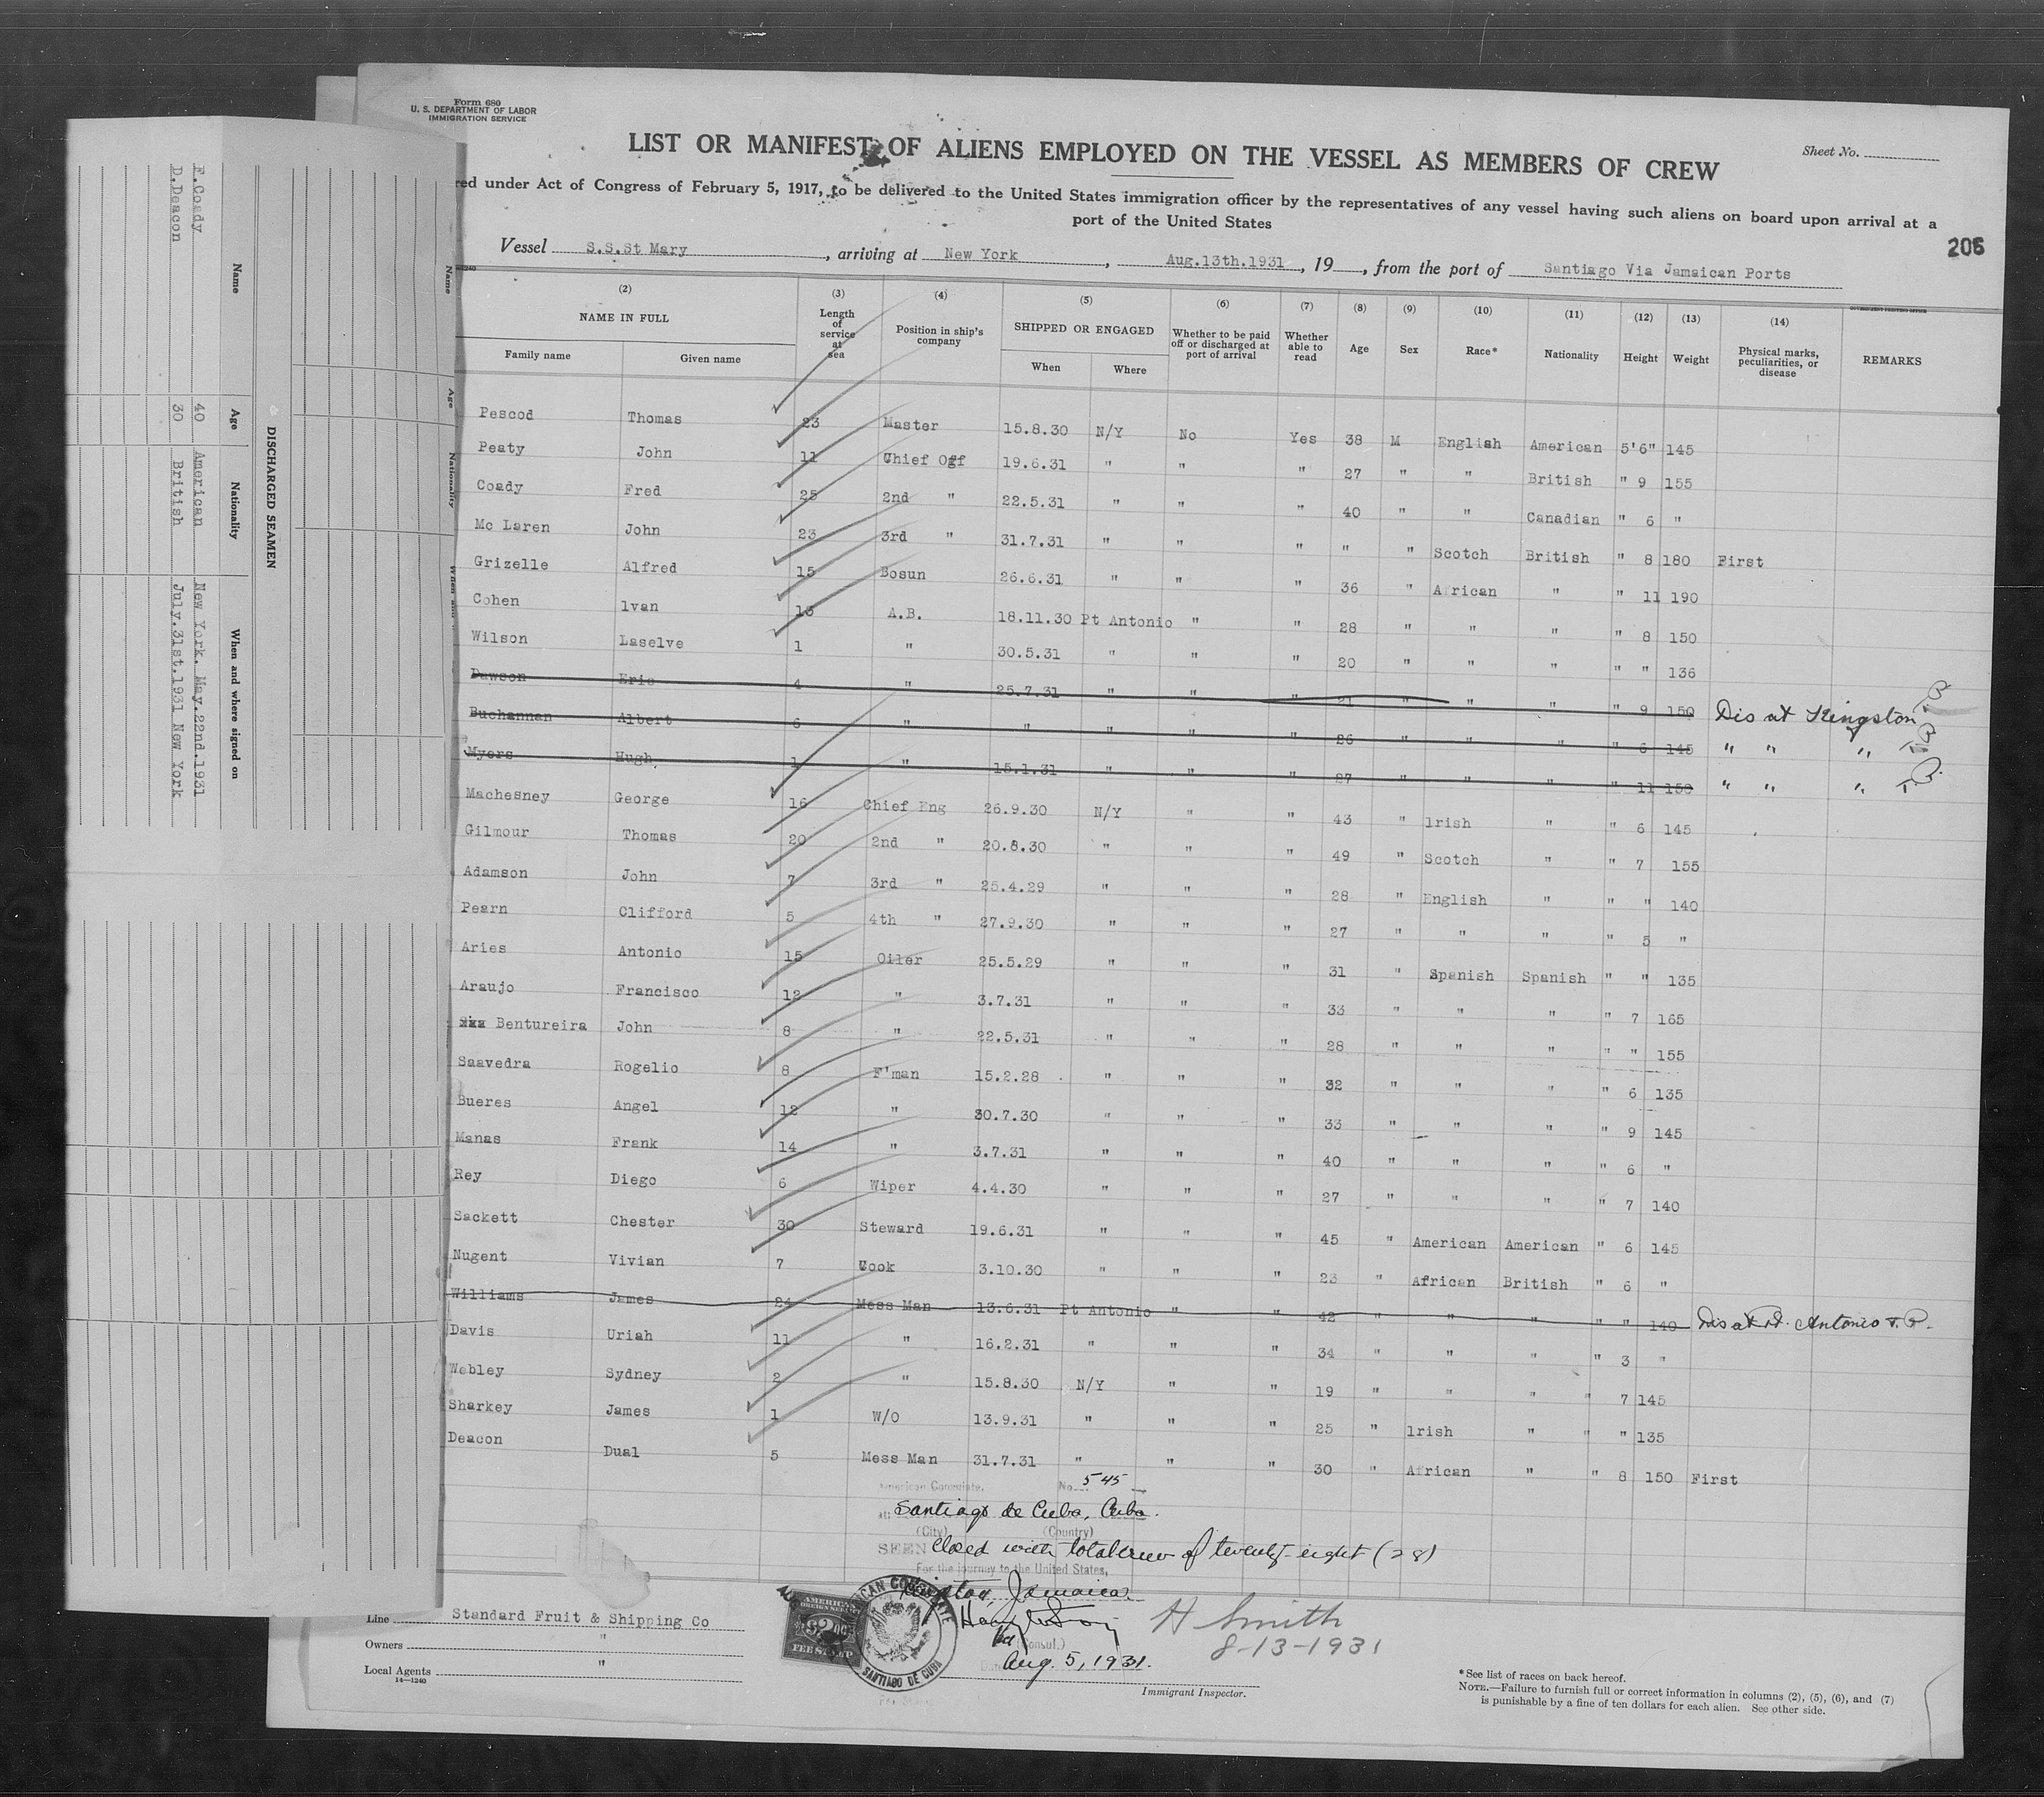 Form 680
U. S. DEPARTMENT OF LABOR
IMMIGRATION SERVICE
LIST OR MANIFEST OF ALIENS EMPLOYED ON THE VESSEL AS MEMBERS OF CREW
Sheet No.
red under Act of Congress of February 5, 1917, to be delivered to the United States immigration officer by the representatives of any vessel having such aliens on board upon arrival at a
port of the United States
206
Vessel S.S.St Mary, arriving at New York, Aug.13th.1931, 19, from the port of Santiago Via Jamaican Ports
(2) (3) (4) (5) (6) (7) (8) (9) (10) (11) (12) (13) (14)
NAME IN FULL Length of service at sea Position in ship's company SHIPPED OR ENGAGED Whether to be paid off or discharged at port of arrival Whether able to read Age Sex Race* Nationality Height Weight Physical marks, peculiarities, or disease REMARKS
Family name Given name When Where
Pescod Thomas 23 Master 15.8.30 N/Y No Yes 38 M English American 5'6" 145
Peaty John 11 Chief Off 19.6.31 " " " 27 " " British " 9 155
Coady Fred 25 2nd " 22.5.31 " " " 40 " " Canadian " 6 "
Mc Laren John 23 3rd " 31.7.31 " " " " " Scotch British " 8 180 First
Grizelle Alfred 15 Bosun 26.6.31 " " " 36 " African " " 11 190
Cohen lvan 13 A.B. 18.11.30 Pt Antonio " " 28 " " " " 8 150
Wilson Laselve 1 " 30.5.31 " " " 20 " " " " " 136
Dawson Eric 4 " 25.7.31 " " " 21 " " " " 9 150 Dis at Kingston T.B.
Buchannan Albert 6 " " " " " 26 " " " " 6 145 " " " T.B.
Myers Hugh 1 " 15.1.31 " " " 27 " " " " 11 150 " " " T.B.
Machesney George 16 Chief Eng 26.9.30 N/Y " " 43 " lrish " " 6 145
Gilmour Thomas 20 2nd " 20.8.30 " " " 49 " Scotch " " 7 155
Adamson John 7 3rd " 25.4.29 " " " 28 " English " " " 140
Pearn Clifford 5 4th " 27.9.30 " " " 27 " " " " 5 "
Aries Antonio 15 Oiler 25.5.29 " " " 31 " Spanish Spanish " " 135
Araujo Francisco 12 " 3.7.31 " " " 33 " " " " 7 165
Bentureira John 8 " 22.5.31 " " " 28 " " " " " 155
Saavedra Rogelio 8 F'man 15.2.28 " " " 32 " " " " 6 135
Bueres Angel 12 " 30.7.30 " " " 33 " " " " 9 145
Manas Frank 14 " 3.7.31 " " " 40 " " " " 6 "
Rey Diego 6 Wiper 4.4.30 " " " 27 " " " " 7 140
Sackett Chester 30 Steward 19.6.31 " " " 45 " American American " 6 145
Nugent Vivian 7 Cook 3.10.30 " " " 23 " African British " 6 "
Williams James 24 Mess Man 13.6.31 Pt Antonio " " 42 " " " " " 140 Dis at Pt. Antonio
Davis Uriah 11 " 16.2.31 " " " 34 " " " " 3 "
Webley Sydney 2 " 15.8.30 N/Y " " 19 " " " " 7 145
Sharkey James 1 W/O 13.9.31 " " " 25 " lrish " " " 135
Deacon Dual 5 Mess Man 31.7.31 " " " 30 " African " " 8 150 First
American Consulate, No. 545
at Santiago de Cuba, Cuba.
(City) (Country)
SEEN Closed with total crew of twenty-eight (28)
For the journey to the United States,
Kingston, Jamaica.
(Consul.)
Aug. 5, 1931.
H Smith
8-13-1931
Immigrant Inspector.
AMERICAN CONSULATE
SANTIAGO DE CUBA
AMERICAN
FOREIGN SERVICE
$2.00
FEE STAMP
Line Standard Fruit & Shipping Co
Owners "
Local Agents "
14—1240
*See list of races on back hereof.
NOTE.—Failure to furnish full or correct information in columns (2), (5), (6), and (7)
is punishable by a fine of ten dollars for each alien. See other side.
DISCHARGED SEAMEN
Name Age Nationality When and where signed on
F.Coady 40 American New York. May.22nd.1931
D.Deacon 30 British July.31st.1931 New York
Name Age Nationality